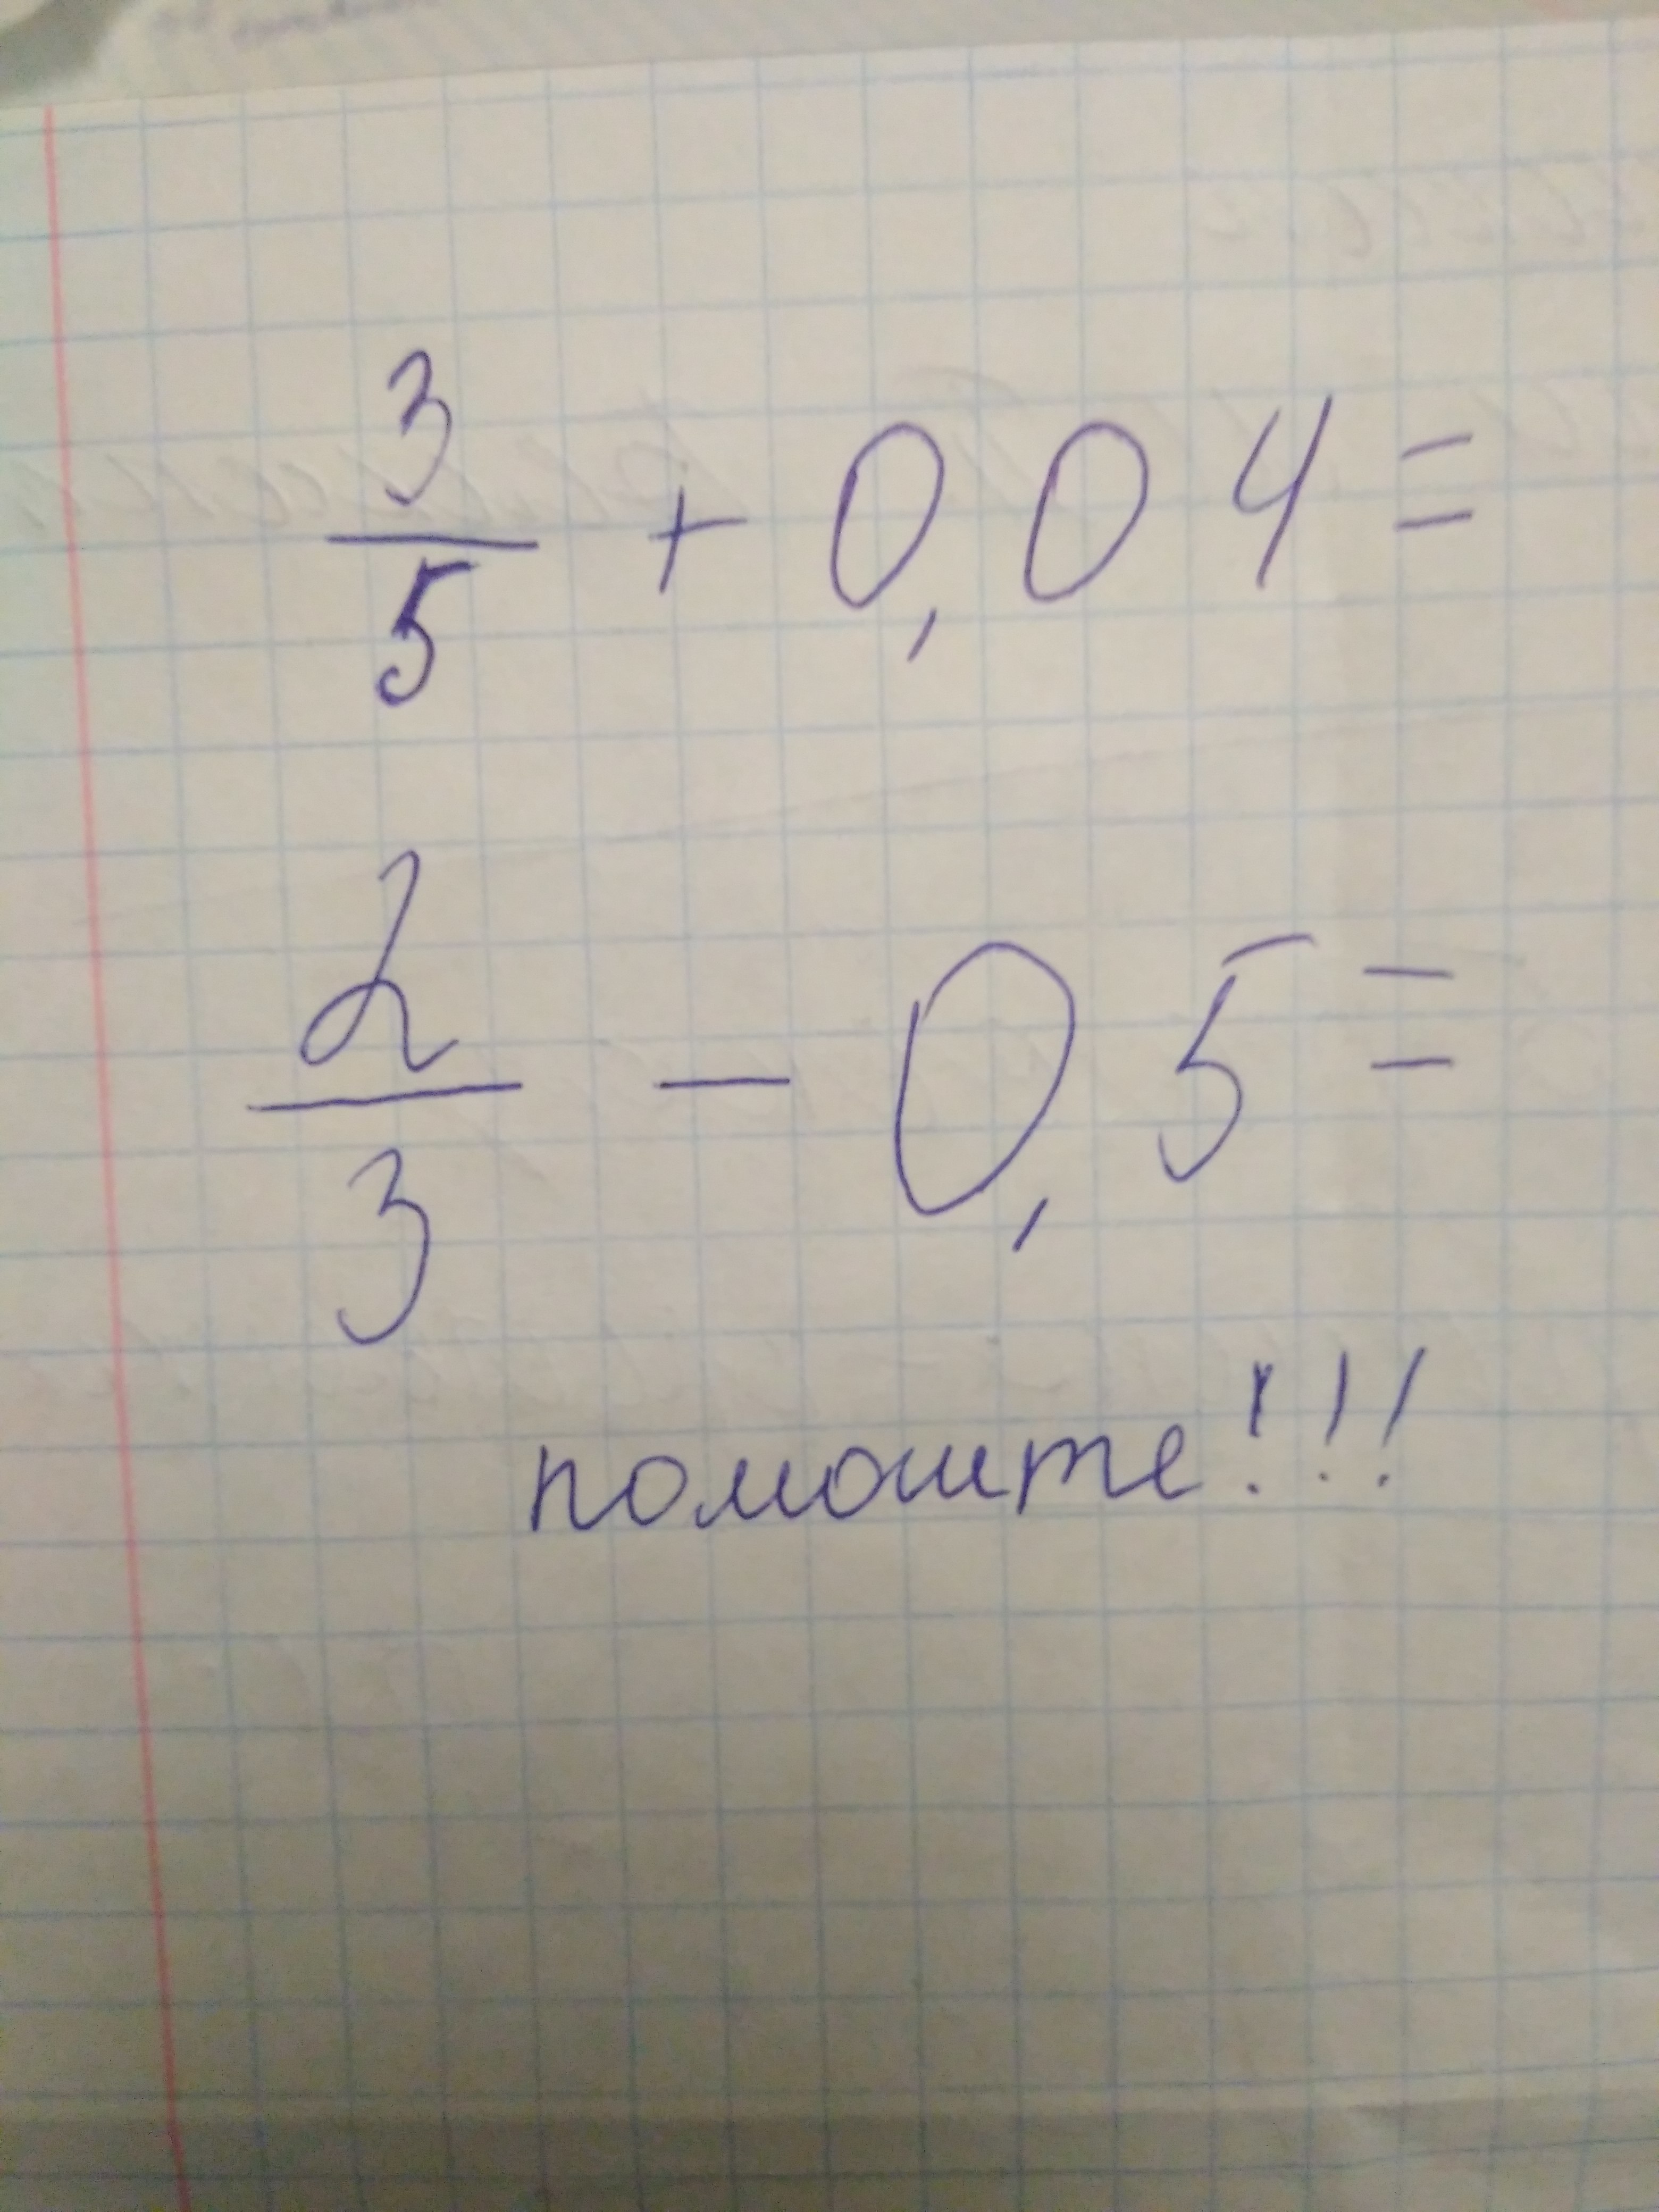 3/5 + 0,04 =
2/3 - 0,5 =
помоште!!!